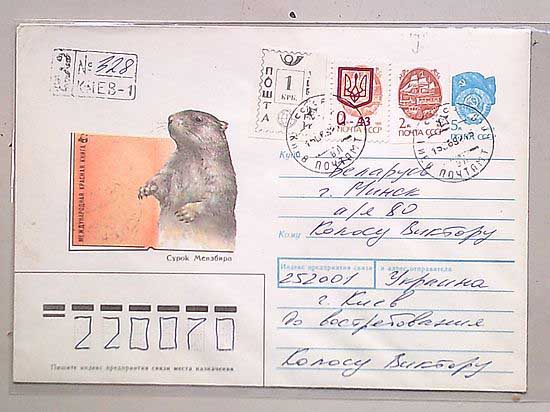 № 328
КИЕВ-1
ПОШТА
1
КРБ.
0-43
ПОЧТА СССР
2к
ПОЧТА СССР
5к
МЕЖДУНАРОДНАЯ КРАСНАЯ КНИГА
Сурок Мензбира
Куда
Беларусь
г. Минск
а/я 80
Кому
Колосу Виктору
Индекс предприятия связи и адрес отправителя
252001 Украина
г. Киев
До востребования
Колосу Виктору
220070
Пишите индекс предприятия связи места назначения